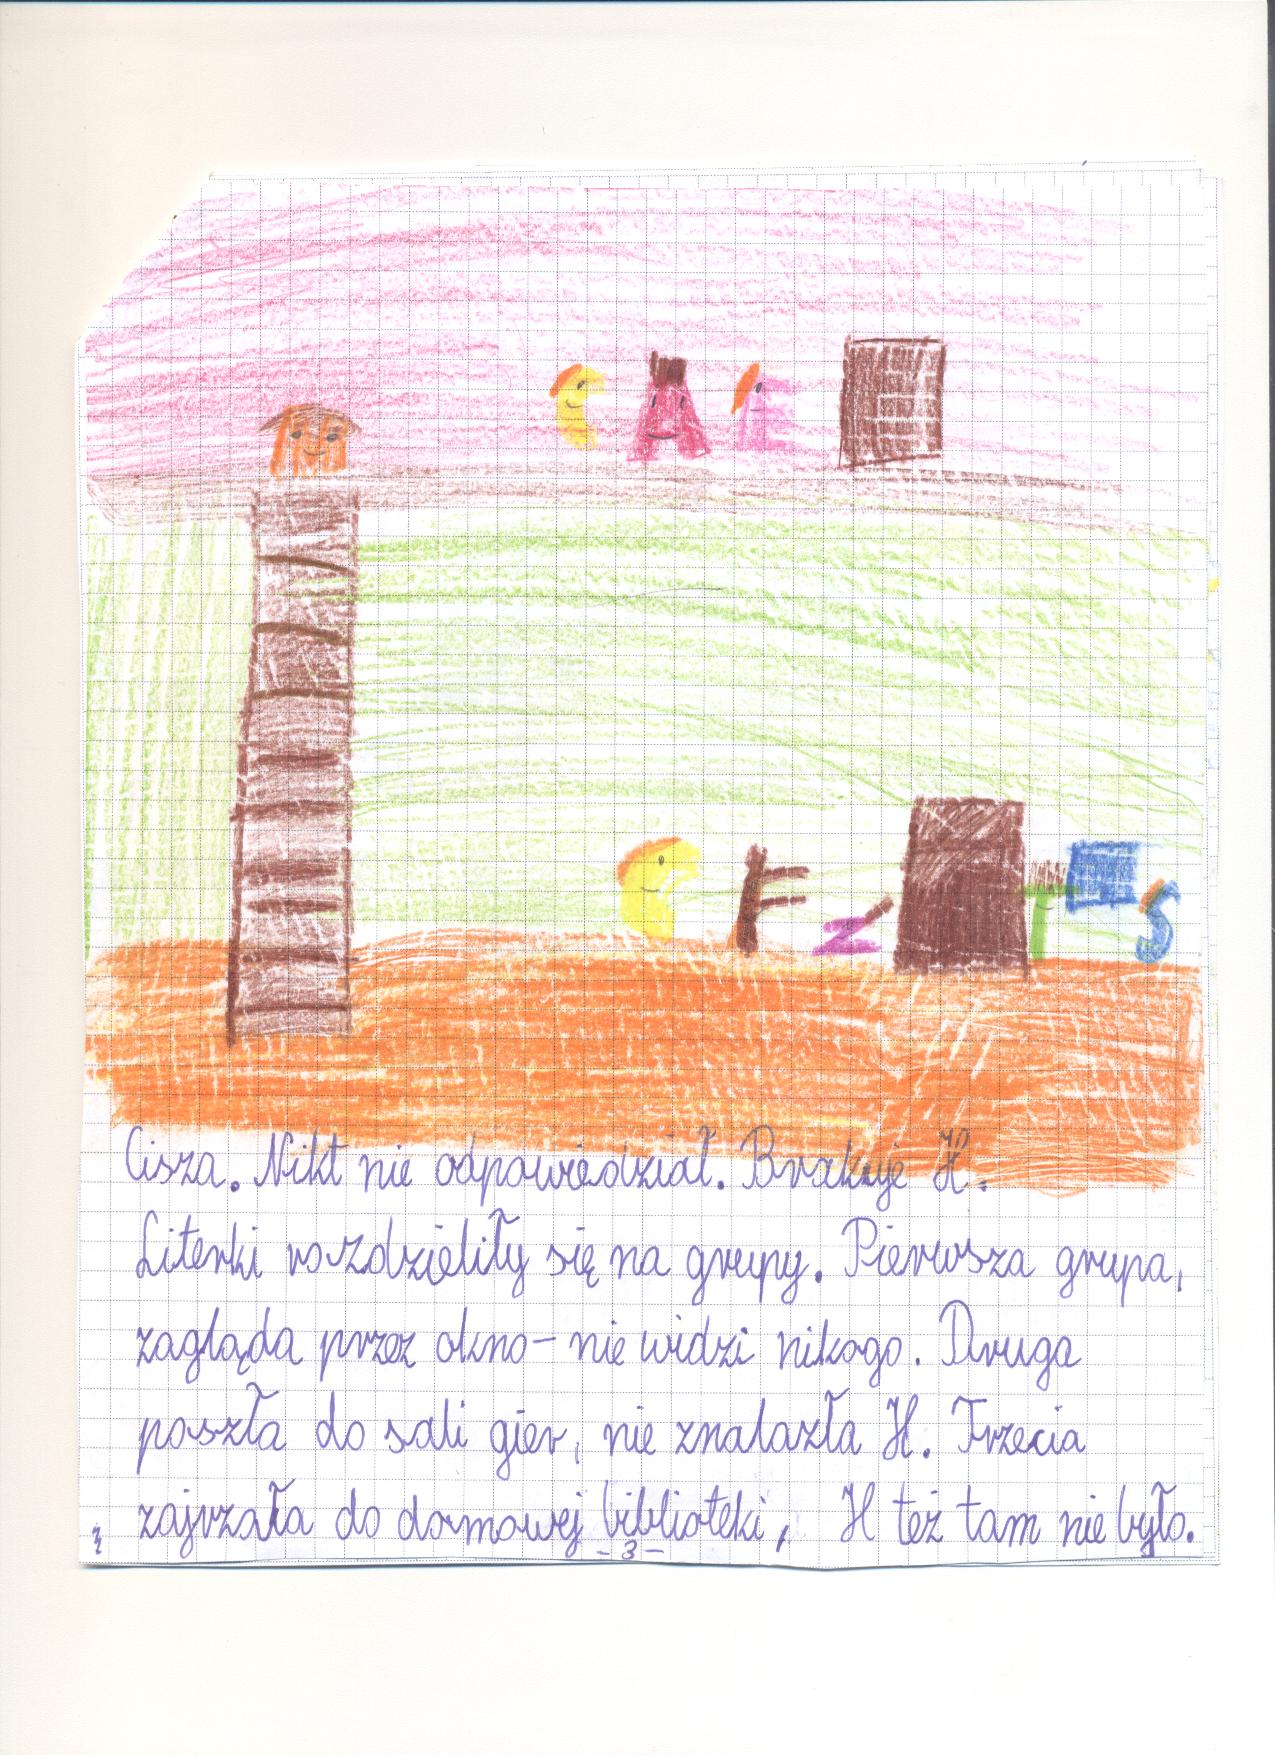 C A E
C F Z T S
Cisza. Nikt nie odpowiedział. Brakuje H.
Literki rozdzieliły się na grupy. Pierwsza grupa,
zagląda przez okno – nie widzi nikogo. Druga
poszła do sali gier, nie znalazła H. Trzecia
zajrzała do domowej biblioteki, H też tam nie było.
- 3 -